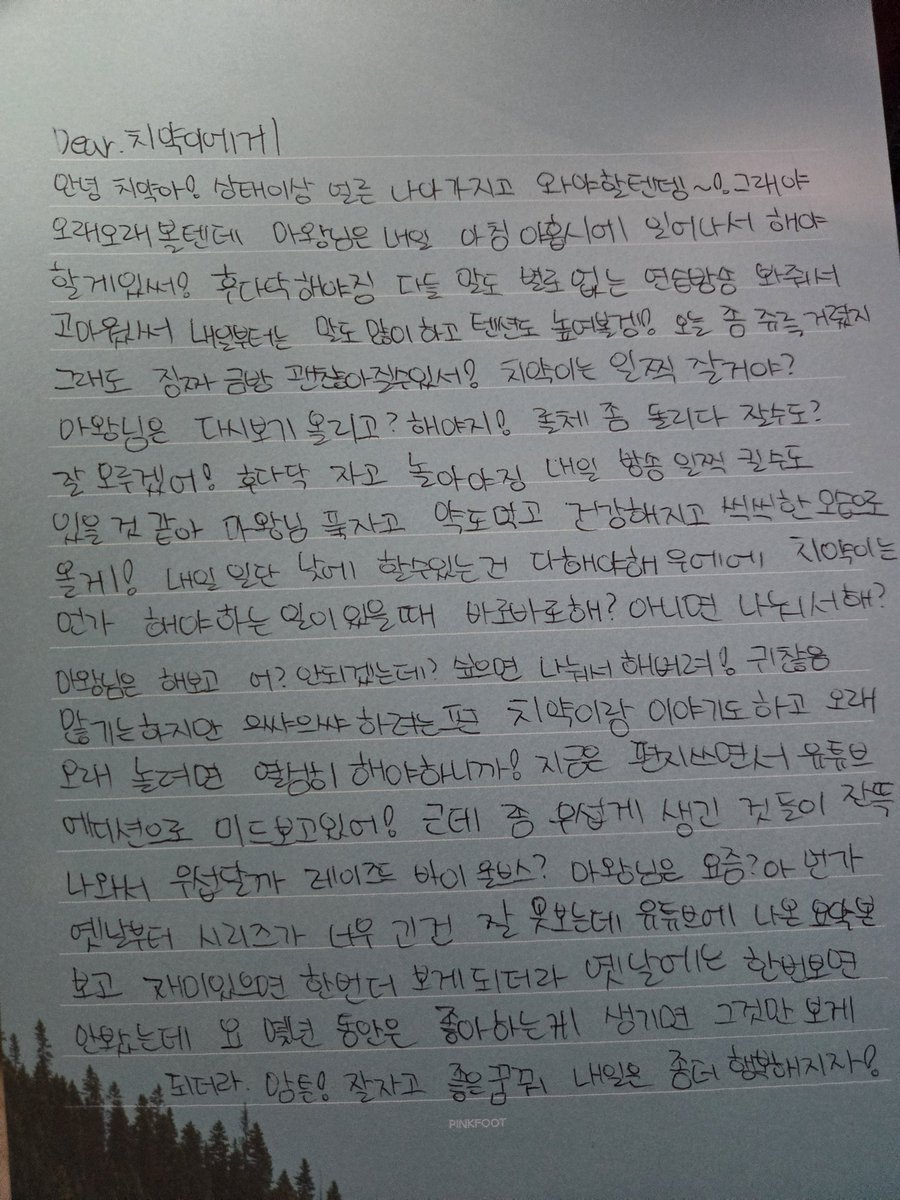 Dear. 치약이에게
안녕 치약아! 상태이상 얼른 나다가지고 와야할텐뎅~! 그래야
오래오래 볼텐데 마왕님은 내일 아침 아홉시에 일어나서 해야
할게있써! 후다닥해야징 다들 말도 별로 없는 연습방송 와줘서
고마웠서 내일부터는 말도 많이 하고 텐션도 높여볼겡!! 오늘 좀 쥬륵 거렸지
그래도 징짜 금방 괜찮아질수있서! 치약이는 일찍 잘거야?
마왕님은 다시보기 올리고? 해야지! 롤체 좀 돌리다 잘수도?
잘 모루겠어! 후다닥 자고 놀아야징 내일 방송 일찍 킬수도
있을 것 같아 마왕님 푹자고 약도먹고 건강해지고 씩씩한 모습으로
올게! 내일 일단 낮에 할수있는건 다해야해 우에에 치약이는
먼가 해야하는 일이 있을때 바로바로해? 아니면 나눠서해?
마왕님은 해보고 어? 안되겠는데? 싶으면 나눠서 해버려! 귀찮음
많기는하지만 으쌰으쌰 하려는편 치약이랑 이야기도하고 오래
오래 놀려면 열심히 해야하니까! 지금은 편지쓰면서 유튜브
에디션으로 미드보고있어! 근데 좀 무섭게 생긴 것들이 잔뜩
나와서 무섭달까 레이즈드 바이 울브스? 마왕님은 요즘? 아 먼가
옛날부터 시리즈가 너무 긴건 잘 못보는데 유튜브에 나온 요약본
보고 재미있으면 한번더 보게되더라 옛날에는 한번보면
안봤는데 요 몇년 동안은 좋아하는게 생기면 그것만 보게
되더라. 암튼! 잘자고 좋은꿈꿔 내일은 좀더 행복해지자!
PINKFOOT